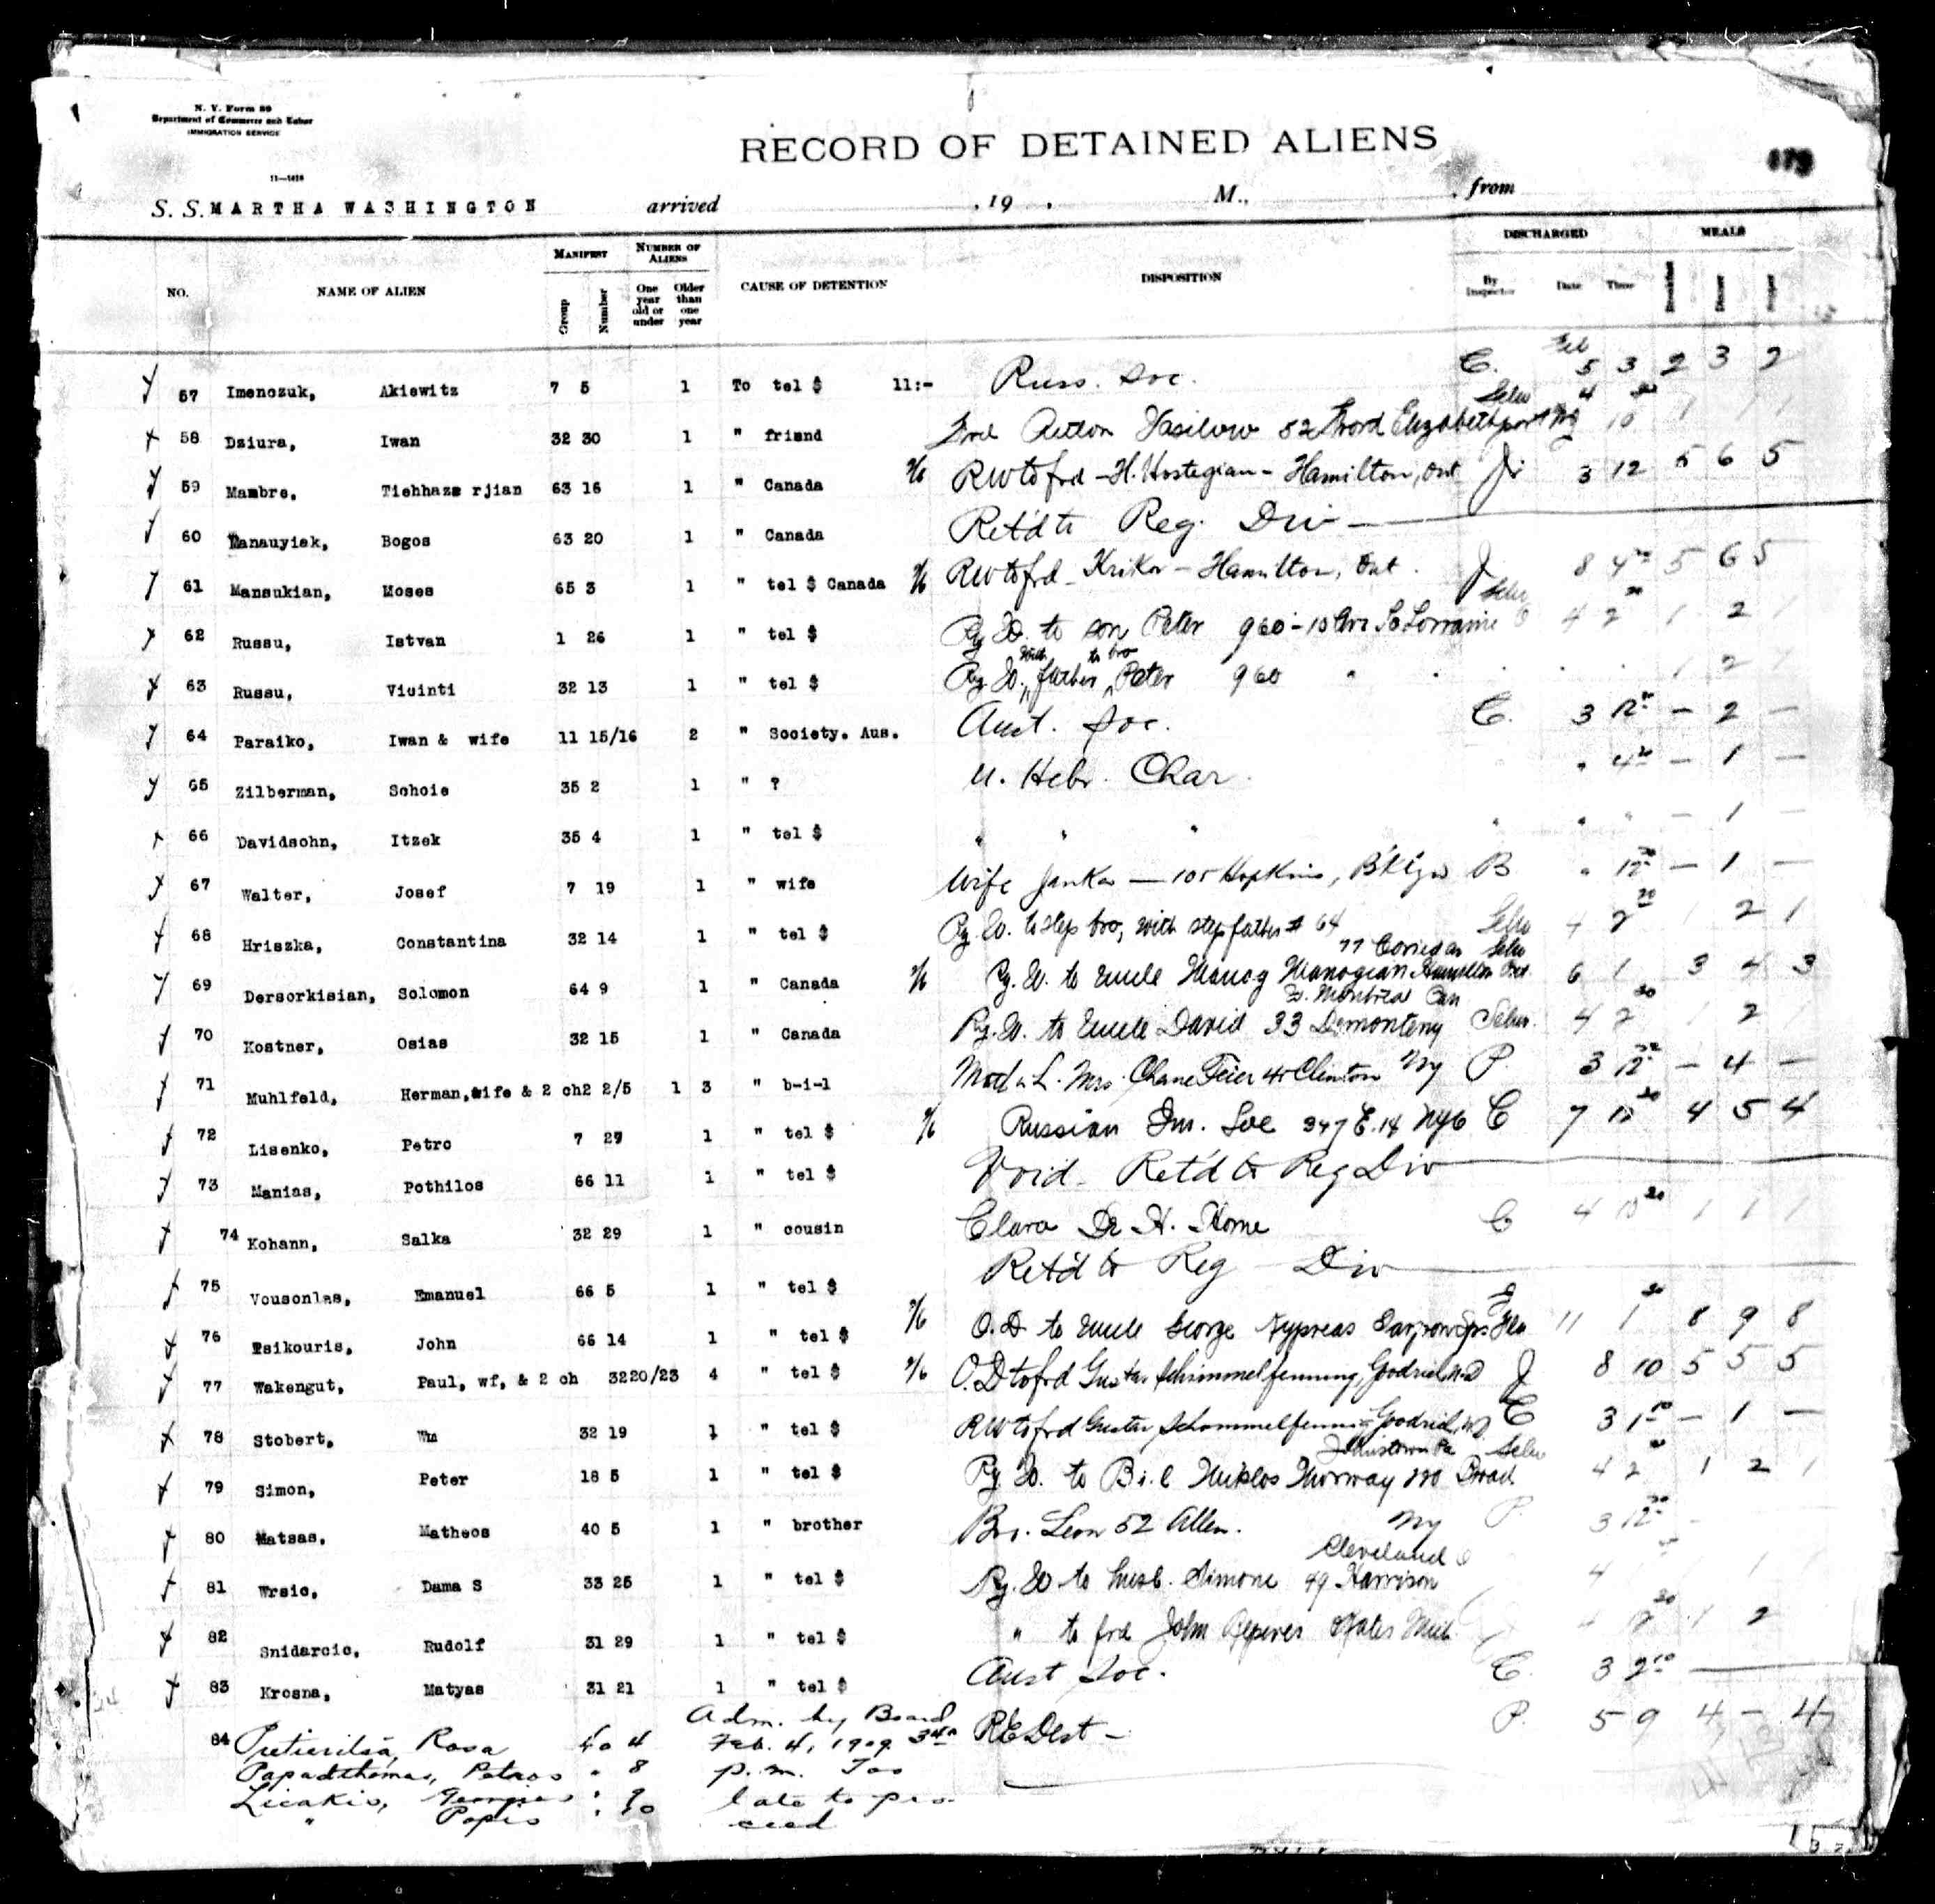 N. Y. Form 89
Department of Commerce and Labor
IMMIGRATION SERVICE
RECORD OF DETAINED ALIENS
S. S. MARTHA WASHINGTON arrived , 19 , M., from
MANIFEST NUMBER OF ALIENS DISCHARGED MEALS
NO. NAME OF ALIEN Group Number One year old or under Older than one year CAUSE OF DETENTION DISPOSITION By Inspector Date Time Breakfast Dinner Supper
57 Imenozuk, Akiewitz 7 5 1 To tel $ 11:- Russ. Soc. C. Feb 5 3 2 3 2
58 Dziura, Iwan 32 30 1 " friend 52 Elizabethport NJ 4 10 1 1 1
59 Mambre, Tiehhaze rjian 63 16 1 " Canada RW to frd - H. Hostegian - Hamilton, Ont 3 12 5 6 5
60 Manauyiek, Bogos 63 20 1 " Canada Ret'd to Reg. Div
61 Mansukian, Moses 65 3 1 " tel $ Canada RW to frd - Krikor - Hamilton, Ont. J 8 4 5 6 5
62 Russu, Istvan 1 26 1 " tel $ Ry. W. to son Peter 960 - 10 Ave So Lorraine O 4 2 1 2 1
63 Russu, Vicinti 32 13 1 " tel $ Ry. W. with father to bro Peter 960 " " 1 2 1
64 Paraiko, Iwan & wife 11 15/16 2 " Society. Aus. Aust. Soc. C. 3 12 - 2 -
65 Zilberman, Schoie 35 2 1 " ? U. Hebr. Char. " 4 - 1 -
66 Davidsohn, Itzek 35 4 1 " tel $ " " " " " " - 1 -
67 Walter, Josef 7 19 1 " wife Wife Janka - 105 Hopkins, B'klyn B " 12 - 1 -
68 Hriszka, Constantina 32 14 1 " tel $ Ry. W. to step bro, with step father # 64 4 2 1 2 1
69 Dersorkisian, Solomon 64 9 1 " Canada Ry. W. to Uncle Manog Manogian 77 Hamilton Ont 6 1 3 4 3
70 Kostner, Osias 32 15 1 " Canada Ry. W. to Uncle David 33 Demonteny Montreal Can 4 2 1 2 1
71 Muhlfeld, Herman, wife & 2 ch2 2/5 1 3 " b-i-l Mrs. Chane Feier 45 Clinton NY P. 3 12 - 4 -
72 Lisenko, Petro 7 27 1 " tel $ Russian Im. Soc 347 E. 14 NYC C 7 10 4 5 4
73 Manias, Pothilos 66 11 1 " tel $ Void - Ret'd to Reg Div
74 Kohann, Salka 32 29 1 " cousin Clara De H. Home C 4 10 1 1 1
75 Vousonlas, Emanuel 66 5 1 " tel $ Ret'd to Reg Div
76 Psikouris, John 66 14 1 " tel $ O. D. to Uncle George Kypreas Fla 11 1 8 9 8
77 Wakengut, Paul, wf, & 2 ch 3220/23 4 " tel $ O. D to frd Gustav Schimmelfennung, Goodrich N.D J 8 10 5 5 5
78 Stobert, Wm 32 19 1 " tel $ RW to frd Gustav Schommelfennig Goodrich, ND C 3 1 - 1 -
79 Simon, Peter 18 5 1 " tel $ Ry. W. to B.i.l Miklos 220 Broad Johnstown Pa 4 2 1 2 1
80 Matsas, Matheos 40 5 1 " brother Bro. Leon 52 Allen. NY P. 3 12 -
81 Wrsic, Dama S 33 25 1 " tel $ Ry. W to husb. Simone 49 Harrison Cleveland O 4 1 1
82 Snidarcic, Rudolf 31 29 1 " tel $ " to frd John Mich. 4 12 1 2
83 Krosna, Matyas 31 21 1 " tel $ Aust Soc. C. 3 2
84 Rosa 40 4 Adm. by Board R.E Dest - P. 5 9 4 - 4
Feb. 4, 1909 3
Papadthomas, Petros " 8 p.m. Too
Licakis, Georgios " 9 late to pro-
" Popis " 10 ceed